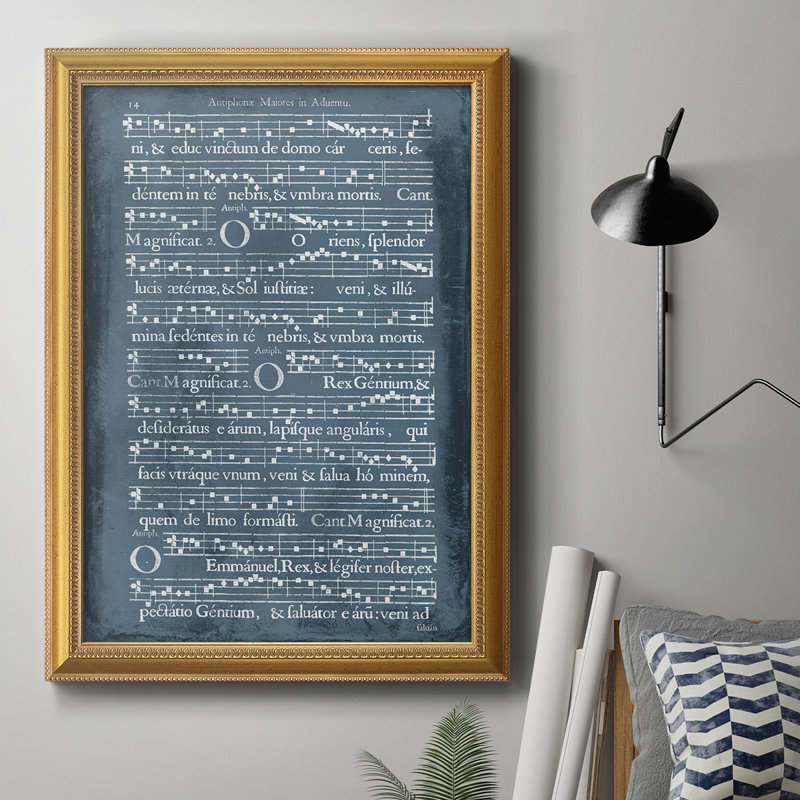 14 Antiphonæ Maiores in Aduentu.
ni, & educ vinctum de domo cár ceris, ſe-
déntem in té nebris, & vmbra mortis. Cant.
Antiph.
Magníficat. 2. O O riens, ſplendor
lucis ætérnæ, & Sol iuſtitiæ: veni, & illú-
mina ſedéntes in té nebris, & vmbra mortis.
Antiph.
Cant. Magníficat. 2. O Rex Géntium, &
deſiderátus e árum, lapíſque anguláris, qui
facis vtráque vnum, veni & ſalua hó minem,
quem de limo formáſti. Cant. Magníficat. 2.
Antiph.
O Emmánuel, Rex, & légifer noſter, ex-
pectátio Géntium, & ſaluátor e árũ: veni ad
ſaluán